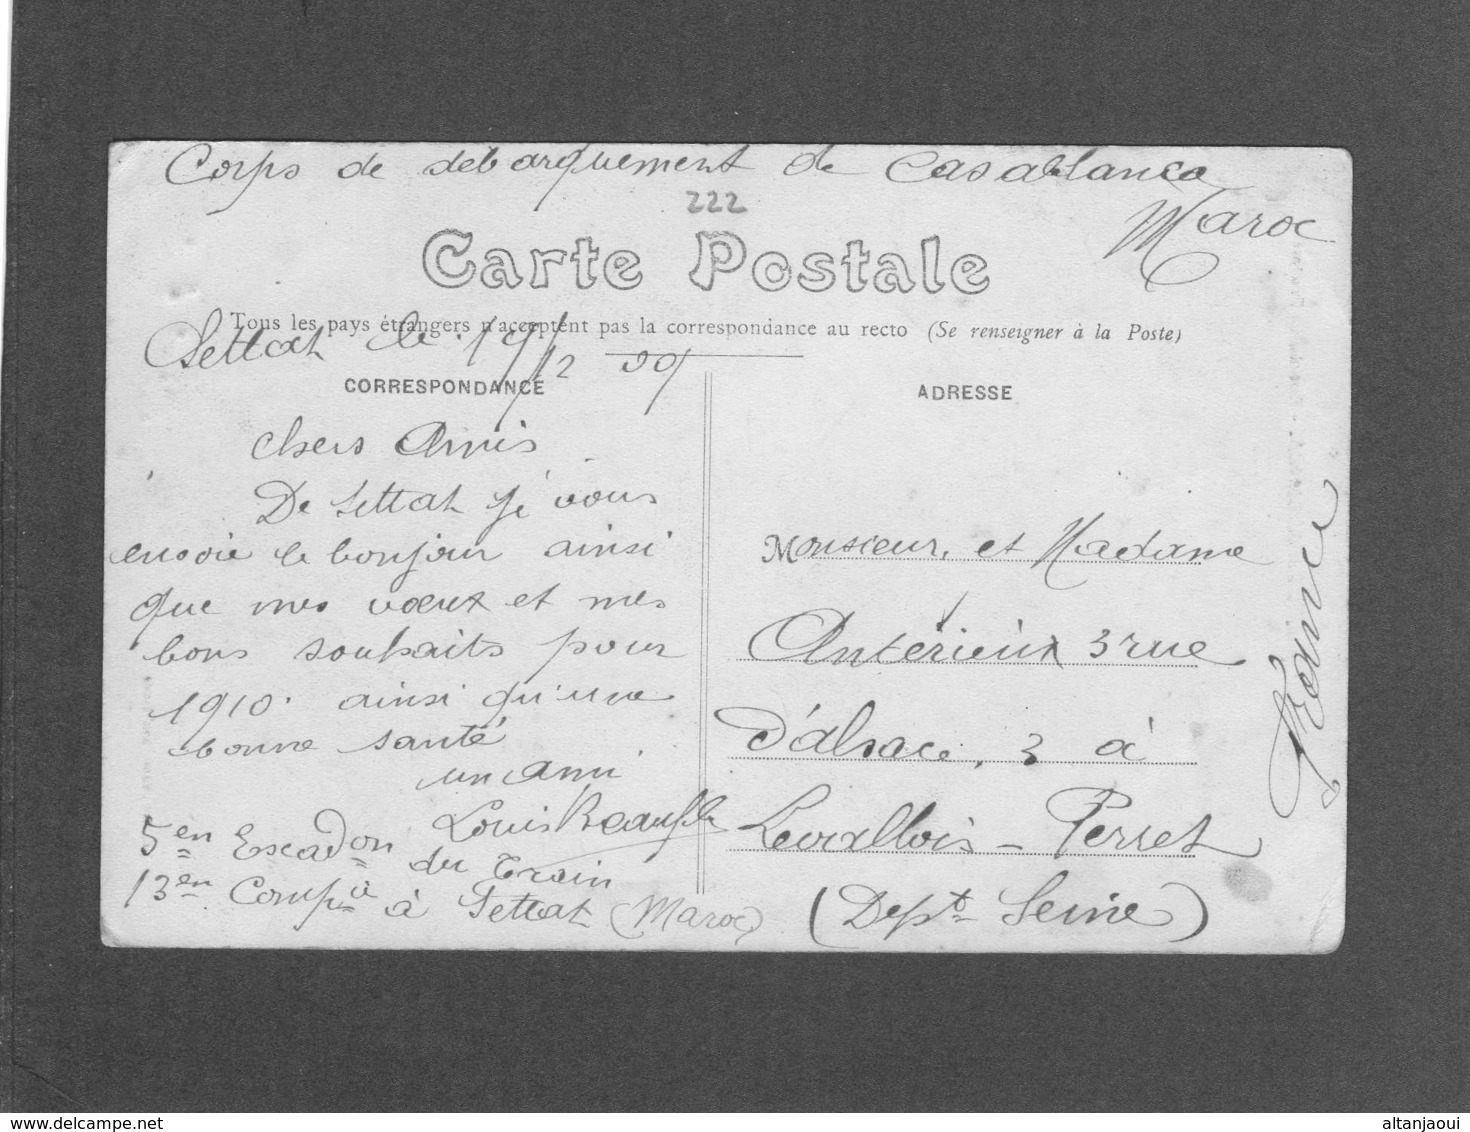 Corps de débarquement de Casablanca
Maroc
222
Carte Postale
Tous les pays étrangers n'acceptent pas la correspondance au recto (Se renseigner à la Poste)
Settat le 19/12 09
CORRESPONDANCE
chers Amis
De Settat je vous
envoie le bonjour ainsi
que mes voeux et mes
bons souhaits pour
1910. ainsi qu'une
bonne santé
un ami
Louis
5en Escadon du Train
13en Compie à Settat (Maroc)
ADRESSE
Monsieur, et Madame
Antérieux 3 rue
d'alsace, 3 à
Levallois - Perret
(Dept Seine)
France
delcampe.net
altanjaoui